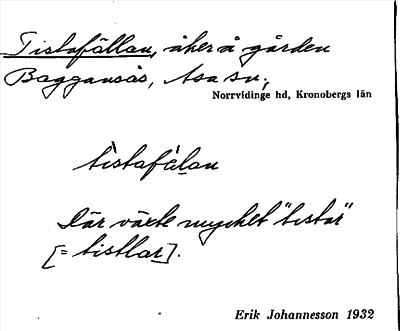 Tistafällan, åker å gården
Baggansås, Asa sn,
Norrvidinge hd, Kronobergs län
tìstafä̀lan
Där växte mycket "tistar"
[= tistlar].
Erik Johannesson 1932